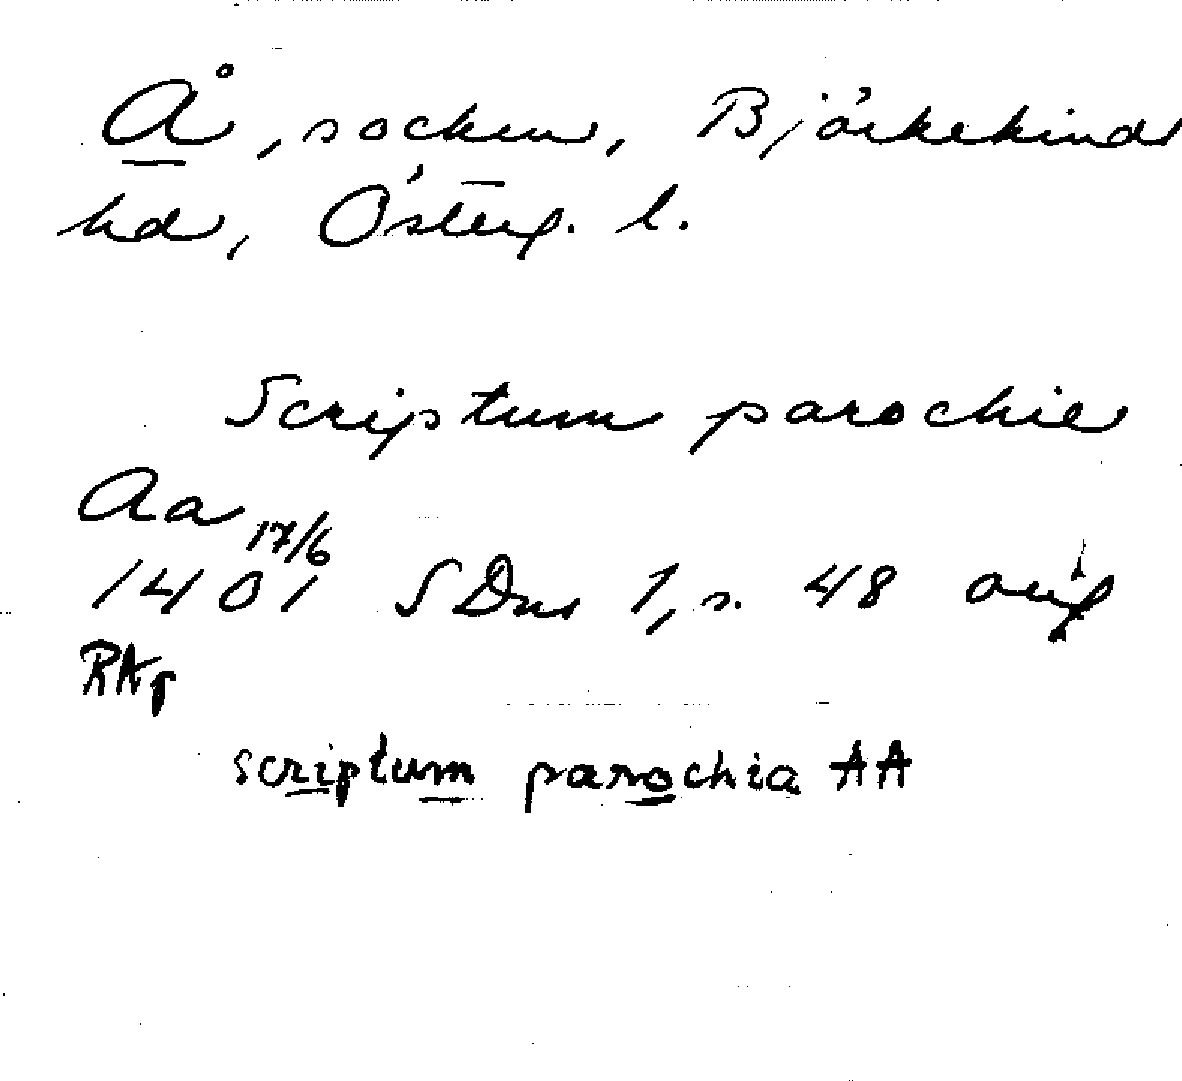 Å, socken, Björkekind
hd, Österg. l.
Scriptum parochie
Aa 17/6
1401 SDns 1, s. 48 orig
RAp
scriptum parochia AA